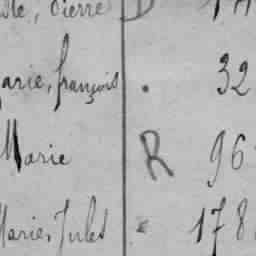 Pierre D
arie, françois . 32
Marie R 96
Marie, Jules " 178